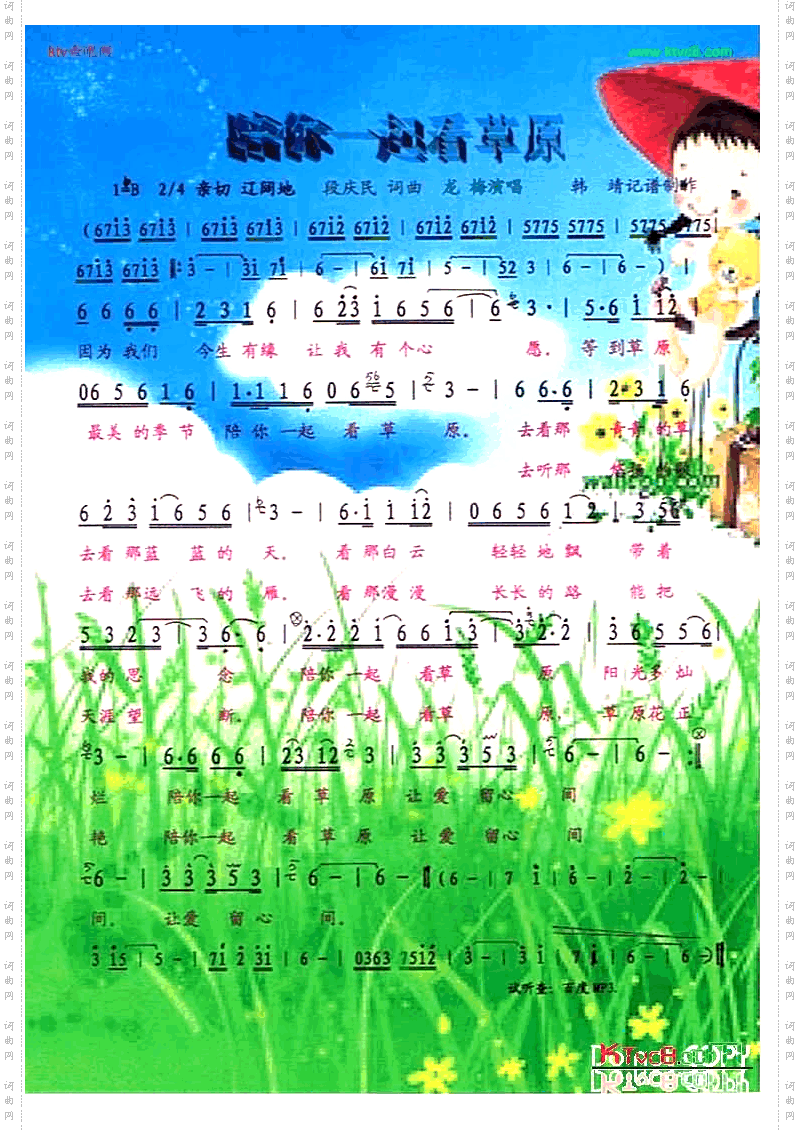 ktv
www.ktvc8.com
陪你一起看草原
1=♭B 2/4 亲切 辽阔地 段庆民 词曲 龙 梅演唱 韩 靖记谱制作
(671̇3̇ 671̇3̇ | 671̇3̇ 671̇3̇ | 671̇2̇ 671̇2̇ | 671̇2̇ 671̇2̇ | 5775 5775 | 5775 5775 |
671̇3̇ 671̇3̇ ‖: 3̇ - | 3̇1̇ 71̇ | 6 - | 61̇ 71̇ | 5 - | 52 3 | 6 - | 6 - ) |
6 6 6 6 | 2 3 1 6 | 6 2̇3̇ 1̇ 6 5 6 | 6 3 · | 5·6 1̇ 1̇2̇ |
因为我们 今生有缘 让我 有个心 愿。 等到草原
06 5 6 1 6 | 1·1 1 6 0 6 5 | 3 - | 6 6·6 | 2·3 1 6 |
最美的季节 陪你一起 看草 原。 去看那 青青的草
去听那 悠扬的歌
6 2̇ 3̇ 1̇ 6 5 6 | 3 - | 6·1̇ 1̇ 1̇2̇ | 0 6 5 6 1 2 | 3 5 6
去看那蓝 蓝的 天。 看那白云 轻轻地飘 带着
去看那远 飞的 雁。 看那漫漫 长长的路 能把
5 3 2 3 | 3 6 · 6 | 2̇·2̇ 2̇ 1̇ 6 6 1̇ 3̇ | 3̇ 2̇·2̇ | 3̇ 6 5 5 6 |
我的思 念 陪你一起 看草 原 阳光多灿
天涯望 断。 陪你一起 看草 原。 草原花正
3 - | 6·6 6 6 | 2̇3̇ 1̇2̇ 3 | 3̇ 3̇ 3̇ 5 3 | 6 - | 6 - :‖
烂 陪你一起 看草原 让爱 留心 间
艳 陪你一起 看草原 让爱 留心 间
6 - | 3̇ 3̇ 3̇ 5 3 | 6 - | 6 - ‖ (6 - | 7 1̇ | 6 - | 2̇ - | 2̇ - |
间。 让爱 留心 间。
3̇ 1̇5 | 5 - | 71̇ 2̇ 3̇1̇ | 6 - | 0363 751̇2̇ | 3̇ - | 3̇ 1̇ | 7 1̇ | 6 - | 6 -) ‖
试听查：百度MP3.
KTvc8.